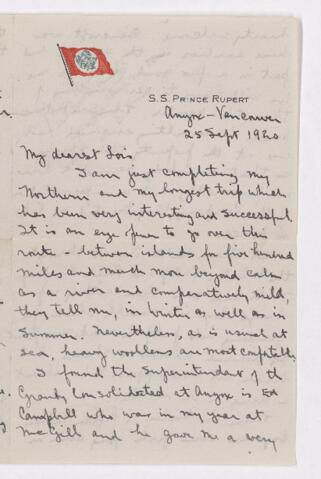 S.S. PRINCE RUPERT
Anyox - Vancouver
25 Sept 1920
My dearest Lois
I am just completing my
Northern and my longest trip which
has been very interesting and successful
It is an eye opener to go over this
route - between islands for five hundred
miles and much more beyond calm
as a river and comparatively mild,
they tell me, in Winter as well as in
Summer. Nevertheless, as is usual at
sea, heavy woollens are most comfortable.
I found the Superintendant of the
Granby Consolidated at Anyox is Ed
Campbell who was in my year at
McGill and he gave me a very